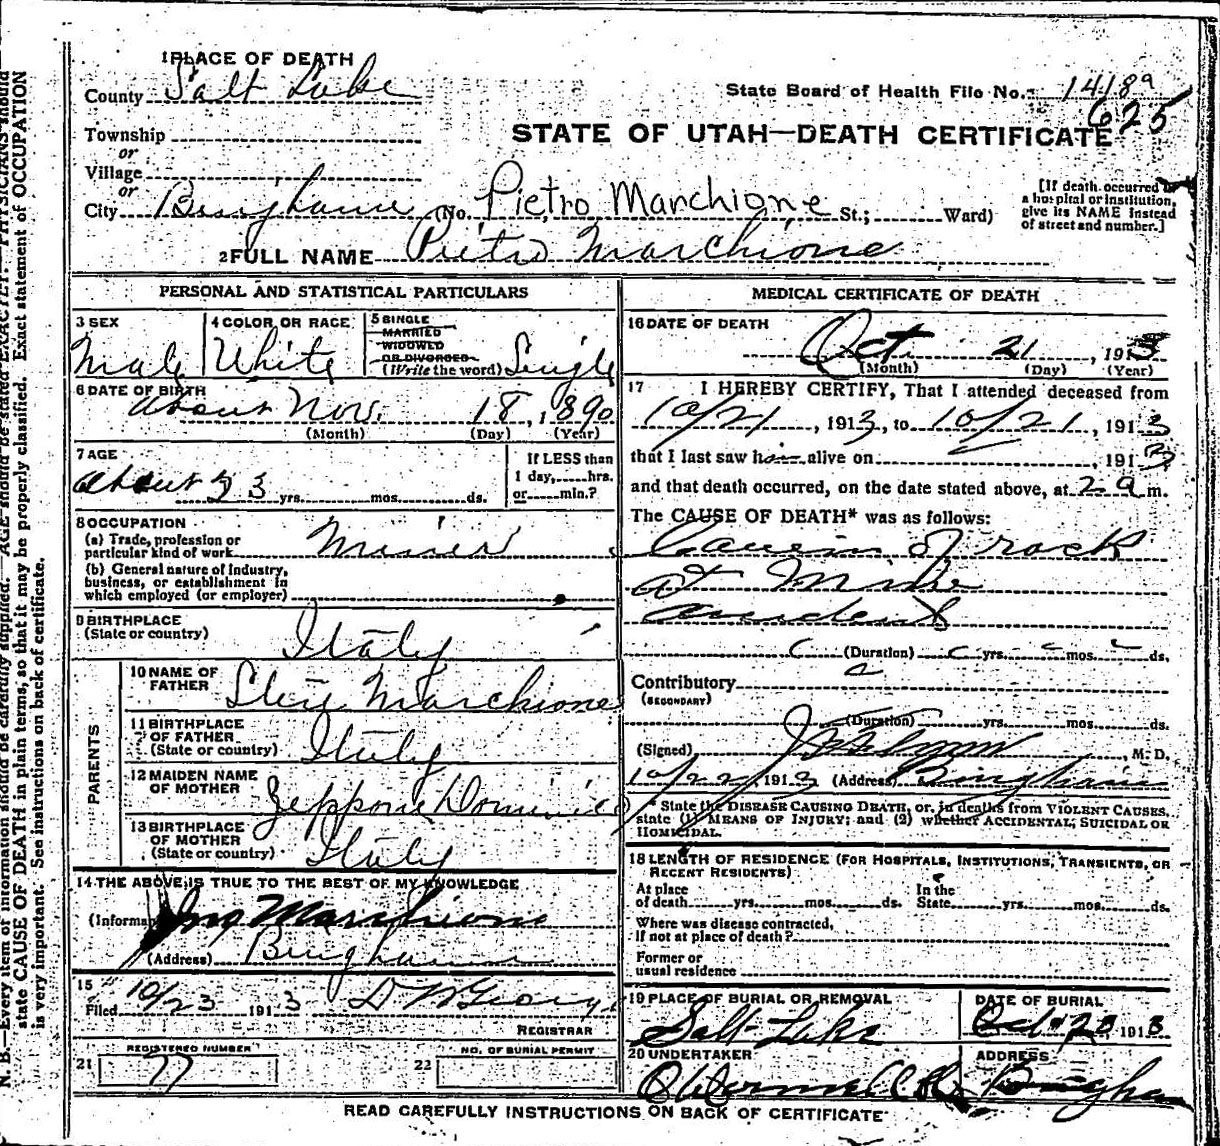 1 PLACE OF DEATH
County Salt Lake
State Board of Health File No. 1418a
625
Township
or
Village
or
STATE OF UTAH—DEATH CERTIFICATE
City Bingham (No. Pietro Marchione St.; Ward)
[If death occurred in a hospital or institution, give its NAME instead of street and number.]
2 FULL NAME Pietro Marchione
PERSONAL AND STATISTICAL PARTICULARS
3 SEX
Male
4 COLOR OR RACE
White
5 SINGLE
MARRIED
WIDOWED
OR DIVORCED
(Write the word) Single
6 DATE OF BIRTH
About Nov. 18, 1890
(Month) (Day) (Year)
7 AGE
About 23 yrs. mos. ds.
If LESS than
1 day, hrs.
or min.?
8 OCCUPATION
(a) Trade, profession or
particular kind of work Miner
(b) General nature of industry,
business, or establishment in
which employed (or employer)
9 BIRTHPLACE
(State or country) Italy
PARENTS
10 NAME OF
FATHER Marchione
11 BIRTHPLACE
OF FATHER
(State or country) Italy
12 MAIDEN NAME
OF MOTHER
13 BIRTHPLACE
OF MOTHER
(State or country) Italy
14 THE ABOVE IS TRUE TO THE BEST OF MY KNOWLEDGE
(Informant) Marchione
(Address) Bingham
15
Filed 10/23 1913
REGISTRAR
REGISTERED NUMBER
21 77
NO. OF BURIAL PERMIT
22
MEDICAL CERTIFICATE OF DEATH
16 DATE OF DEATH
Oct 21, 1913
(Month) (Day) (Year)
17 I HEREBY CERTIFY, That I attended deceased from
10/21, 1913, to 10/21, 1913
that I last saw him alive on , 1913
and that death occurred, on the date stated above, at 2 a m.
The CAUSE OF DEATH* was as follows:
Cavein of rock
at Mine
accident
(Duration) yrs. mos. ds.
Contributory
(SECONDARY)
(Duration) yrs. mos. ds.
(Signed) , M. D.
10/22, 1913 (Address) Bingham
* State the DISEASE CAUSING DEATH, or, in deaths from VIOLENT CAUSES,
state (1) MEANS OF INJURY; and (2) whether ACCIDENTAL, SUICIDAL OR
HOMICIDAL.
18 LENGTH OF RESIDENCE (FOR HOSPITALS, INSTITUTIONS, TRANSIENTS, OR
RECENT RESIDENTS)
At place
of death yrs. mos. ds.
In the
State yrs. mos. ds.
Where was disease contracted,
if not at place of death?
Former or
usual residence
19 PLACE OF BURIAL OR REMOVAL
Salt Lake
DATE OF BURIAL
Oct 23, 1913
20 UNDERTAKER
ADDRESS
Bingham
READ CAREFULLY INSTRUCTIONS ON BACK OF CERTIFICATE
N. B.—Every item of information should be carefully supplied. AGE should be stated EXACTLY. PHYSICIANS should
state CAUSE OF DEATH in plain terms, so that it may be properly classified. Exact statement of OCCUPATION
is very important. See instructions on back of certificate.